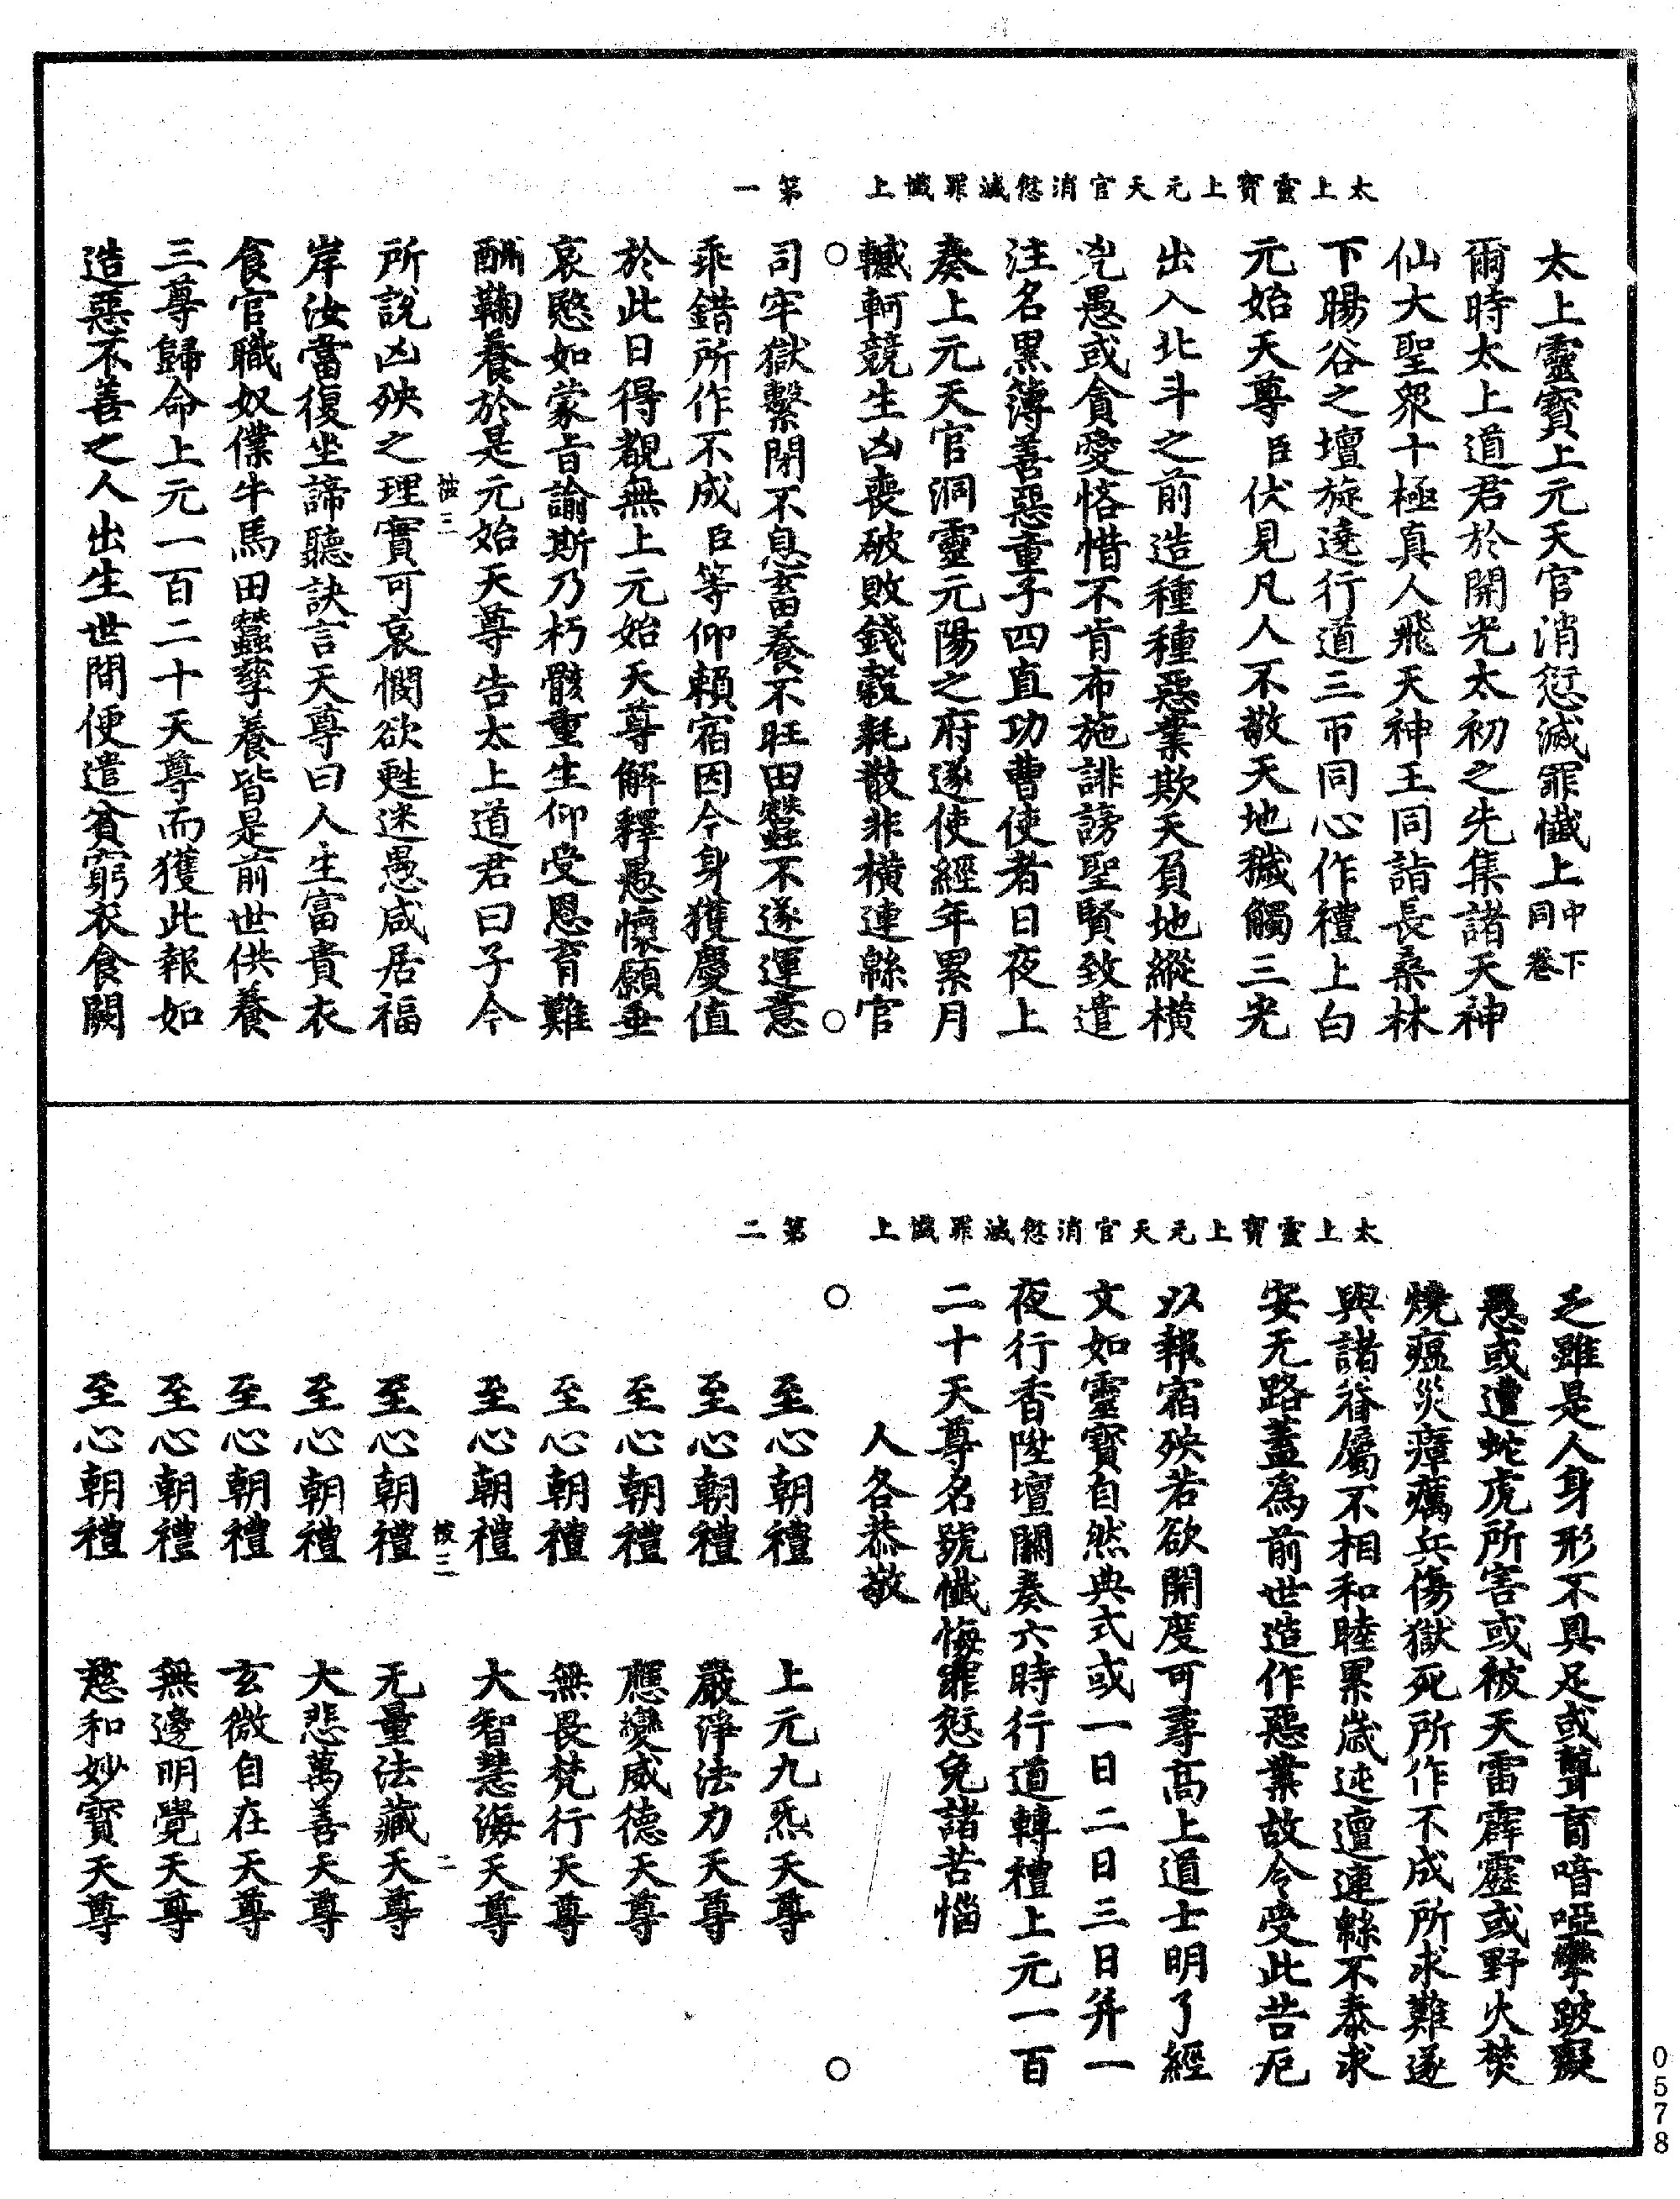 太上靈寶上元天官消愆滅罪懺上　第一
太上靈寶上元天官消愆滅罪懺上中下同卷
爾時太上道君於開光太初之先集諸天神
仙大聖眾十極真人飛天神王同詣長桑林
下暘谷之壇旋遶行道三帀同心作禮上白
元始天尊臣伏見凡人不敬天地穢觸三光
出入北斗之前造種種惡業欺天負地縱橫
兇愚或貪愛恡惜不肯布施誹謗聖賢致遣
注名黑簿善惡童子四直功曹使者日夜上
奏上元天官洞靈元陽之府遂使經年累月
轗軻競生凶喪破敗錢穀耗散非橫連緜官
司牢獄繫閉不息畜養不旺田蠶不遂運意
乖錯所作不成臣等仰賴宿因今身獲慶值
於此日得覩無上元始天尊解釋愚懷願垂
哀愍如蒙旨諭斯乃朽骸重生仰受恩育難
酬鞠養於是元始天尊告太上道君曰子今
所說凶殃之理實可哀憫欲甦迷愚咸居福
岸汝當復坐諦聽訣言天尊曰人生富貴衣
食官職奴僕牛馬田蠶孳養皆是前世供養
三尊歸命上元一百二十天尊而獲此報如
造惡不善之人出生世間便遣貧窮衣食闕
太上靈寶上元天官消愆滅罪懺上　第二
乏雖是人身形不具足或聾盲喑啞攣跛癡
愚或遭蛇虎所害或被天雷霹靂或野火焚
燒瘟災瘴癘兵傷獄死所作不成所求難遂
與諸眷屬不相和睦累歲迍邅連緜不泰求
安无路蓋為前世造作惡業故令受此苦厄
以報宿殃若欲開度可尋高上道士明了經
文如靈寶自然典式或一日二日三日并一
夜行香陞壇關奏六時行道轉禮上元一百
二十天尊名號懺悔罪愆免諸苦惱
人各恭敬
至心朝禮　上元九炁天尊
至心朝禮　嚴淨法力天尊
至心朝禮　應變威德天尊
至心朝禮　無畏梵行天尊
至心朝禮　大智慧海天尊
至心朝禮　无量法藏天尊
至心朝禮　大悲萬善天尊
至心朝禮　玄微自在天尊
至心朝禮　無邊明覺天尊
至心朝禮　慈和妙寶天尊
0578